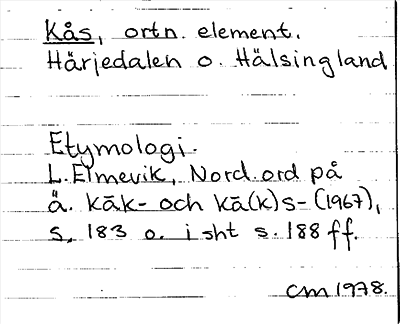 Kås, ortn. element.
Härjedalen o. Hälsingland
Etymologi.
L. Elmevik, Nord. ord på
ä. kāk- och kā(k)s- (1967),
s. 183 o. i sht s. 188 ff.
CM 1978.